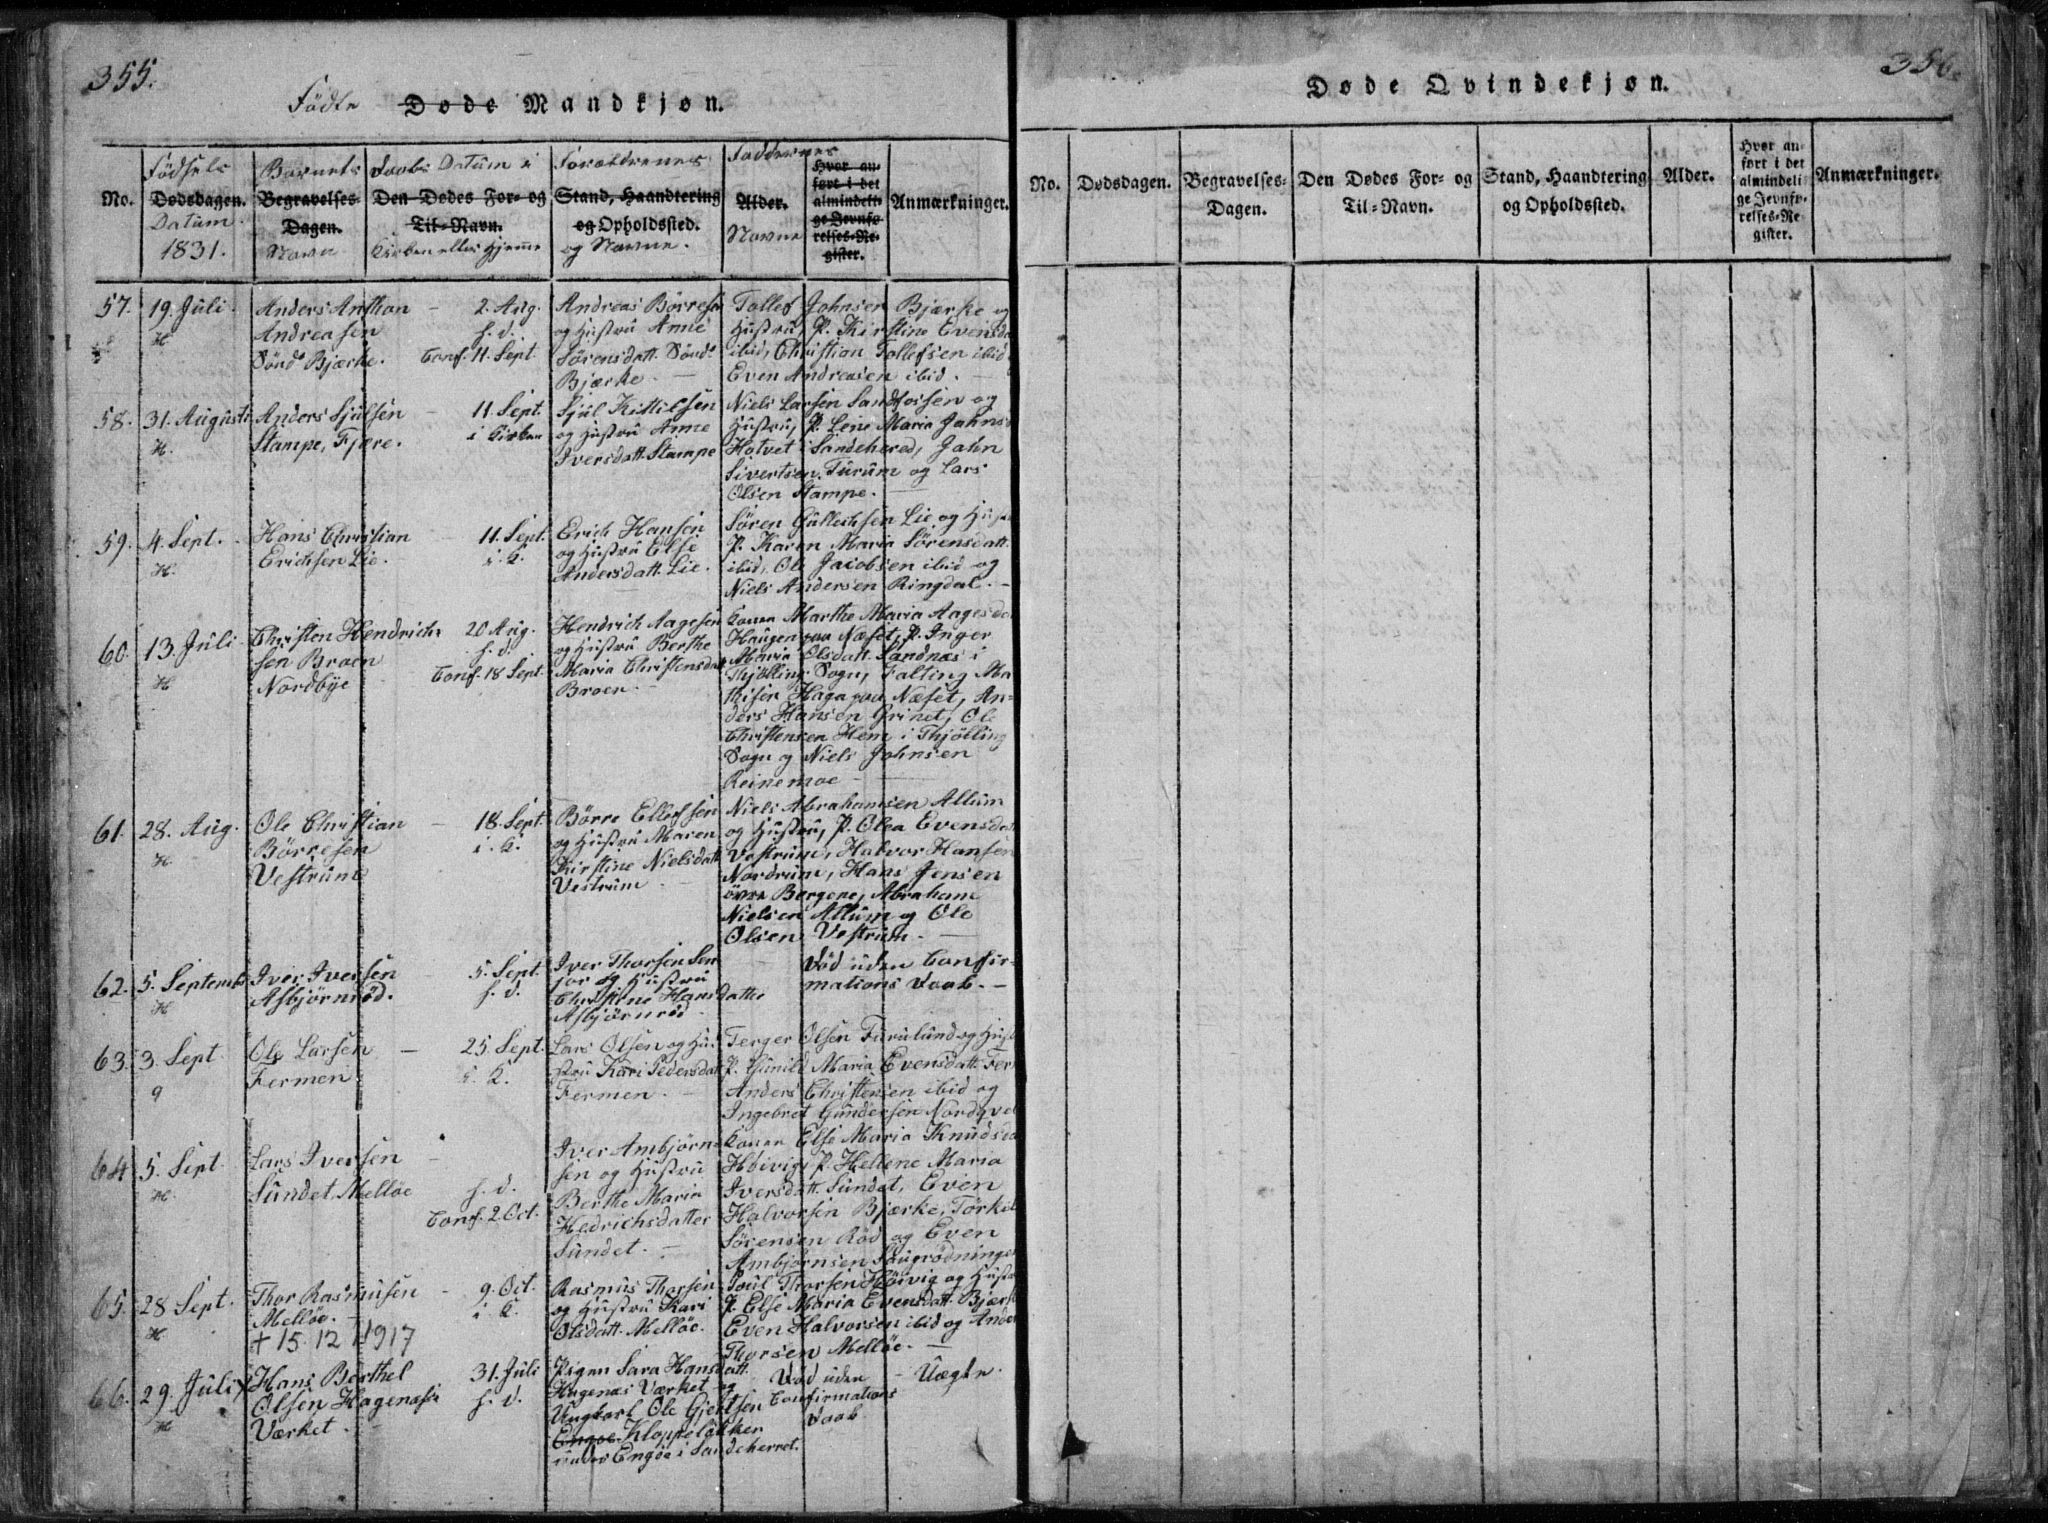 355.
Födte Døde Mandkjøn.
No.
Födsels
Dødsdagen.
Datum
1831.
Barnets
Begravelses-
Dagen.
Navn
Daabs Datum i
Den Dødes For- og
Til-Navn.
Kirken eller hjemme
Forældrenes
Stand, Haandtering
og Opholdssted.
og Navne.
Faddernes
Alder.
Navne
Hvor an-
ført i det
almindeli-
ge Jevnfø-
relses-Re-
gister.
Anmærkninger.
57.
19. Juli
H
Anders Anthon
Andreasen
Sönd Bjærke.
2. Aug.
h. d.
Conf. 11. Sept.
Andreas Börresen
og Hustru Anne
Sörensdatt. Sönd
Bjærke.
Tollef Johnsen Bjærke og
Hustru, P. Kirstine Evensda
ibid, Christian Tollefsen ibid
Even Andreasen ibid.
58.
31. August
H.
Anders Sjulsen
Stampe, Fjære.
11. Sept.
i Kirken
Sjul Kittilsen
og Hustru Anne
Iversdatt. Stampe
Niels Larsen Sandfossen og
Hustru, P. Lene Maria Jahnsd
Hotvet i Sandehered, Jahn
Sivertsen Furum og Lars
Olsen Stampe.
59.
4. Sept.
H.
Hans Christian
Erichsen Lie.
11. Sept.
i. K.
Erich Hansen
og Hustru Else
Andersdatt. Lie.
Sören Gullechsen Lie og Hu
P. Karen Maria Sörensdatt.
ibid, Ole Jacobsen ibid og
Niels Andersen Ringdal.
60.
13. Juli
H
Christen Hendrich-
sen Broen
Nordbye
20 Aug.
h. d.
Conf. 18 Sept.
Hendrich Aagesen
og Hustru Berthe
Maria Christensdatt
Broen.
Konen Marthe Maria Aagesda
Haugen paa Næset, P. Inger
Maria Olsdatt. Sandnæs i
Thjölling Sogn, Falting Ma
thisen Haga paa Næset, An-
ders Hansen Grinet, Ole
Christensen Hem i Thjölling
Sogn og Niels Johnsen
Reinemoe
61.
28. Aug.
H
Ole Christian
Börresen
Vestrum
18. Sept.
i. K.
Börre Ellefsen
og Hustru Maren
Kirstine Nielsdatt
Vestrum
Niels Abrahamsen Allum
og Hustru, P. Olea Evensdatt
Vestrum, Halvor Hansen
Nordrum, Hans Jensen
övre Bergene, Abraham
Nielsen Allum og Ole
Olsen Vestrum.
62.
5. Septemb
H
Iver Iversen
Asbjörnröd.
5. Sept.
h. d.
Iver Thorsen Sen
jor og Hustru
Christine Hansdatter
Asbjörnröd
Död uden Confir-
mations Daab.
63.
3. Sept
9
Ole Larsen
Fermen.
25. Sept.
i. K.
Lars Olsen og Hu-
stru Kari Pedersdatt
Fermen.
Terger Olsen Furulund og Hust
P. Gunild Maria Evensdatt. Fer
Anders Christensen ibid og
Ingebret Gundersen Nordqve
64
5. Sept
H.
Lars Iversen
Sundet. Mellöe
h. d.
Conf. 2 Oct.
Iver Ambjörn-
sen og Hustru
Berthe Maria
Hedrichsdatter
Sundet.
Konen Else Maria Knudsda
Höivig, P. Hellene Maria
Iversdatt. Sundet, Even
Halvorsen Bjærke, Törkil
Sörensen Röd og Even
Ambjörnsen Haugrödningen
65.
28 Sept.
H.
Thor Rasmusen
Mellöe.
† 15. 12 1917
9. Oct.
i. K.
Rasmus Thorsen
og Hustru Kari
Olsdatt. Mellöe.
Poul Thorsen Höivig og Hustr
P. Else Maria Evensdatt. Bjær
Even Halvorsen ibid og Ande
Thorsen Mellöe.
66.
29. Juli
H
Hans Berthel
Olsen Hagenæs
Værket.
31. Juli
h. d.
Pigen Sara Hansdatt.
Hagenæs Værket og
Ungkarl Ole Gjertsen
Engöe Kloppelökken
under Engöe i Sandeherret.
Död uden
Confirmations
Daab
Uægte.
356.
Døde Qvindekjøn.
No.
Dødsdagen.
Begravelses-
Dagen.
Den Dødes For- og
Til-Navn.
Stand, Haandtering
og Opholdssted.
Alder.
Hvor an-
ført i det
almindeli-
ge Jevnfø-
relses-Re-
gister.
Anmærkninger.